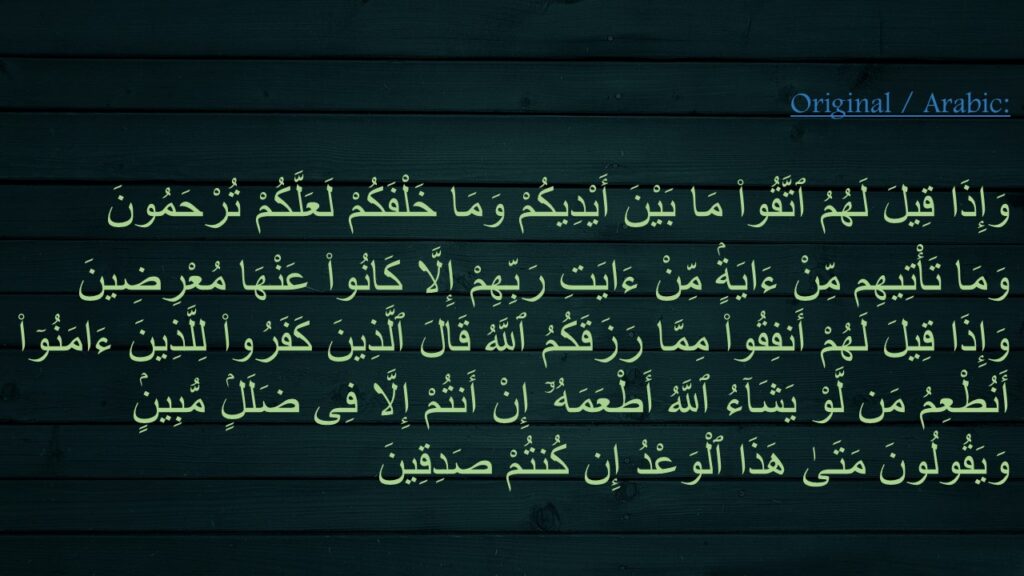 Original / Arabic:
وَإِذَا قِيلَ لَهُمُ ٱتَّقُوا۟ مَا بَيْنَ أَيْدِيكُمْ وَمَا خَلْفَكُمْ لَعَلَّكُمْ تُرْحَمُونَ
وَمَا تَأْتِيهِم مِّنْ ءَايَةٍۢ مِّنْ ءَايَتِ رَبِّهِمْ إِلَّا كَانُوا۟ عَنْهَا مُعْرِضِينَ
وَإِذَا قِيلَ لَهُمْ أَنفِقُوا۟ مِمَّا رَزَقَكُمُ ٱللَّهُ قَالَ ٱلَّذِينَ كَفَرُوا۟ لِلَّذِينَ ءَامَنُوٓا۟
أَنُطْعِمُ مَن لَّوْ يَشَآءُ ٱللَّهُ أَطْعَمَهُۥٓ إِنْ أَنتُمْ إِلَّا فِى ضَلَلٍۢ مُّبِينٍۢ
وَيَقُولُونَ مَتَىٰ هَذَا ٱلْوَعْدُ إِن كُنتُمْ صَدِقِينَ